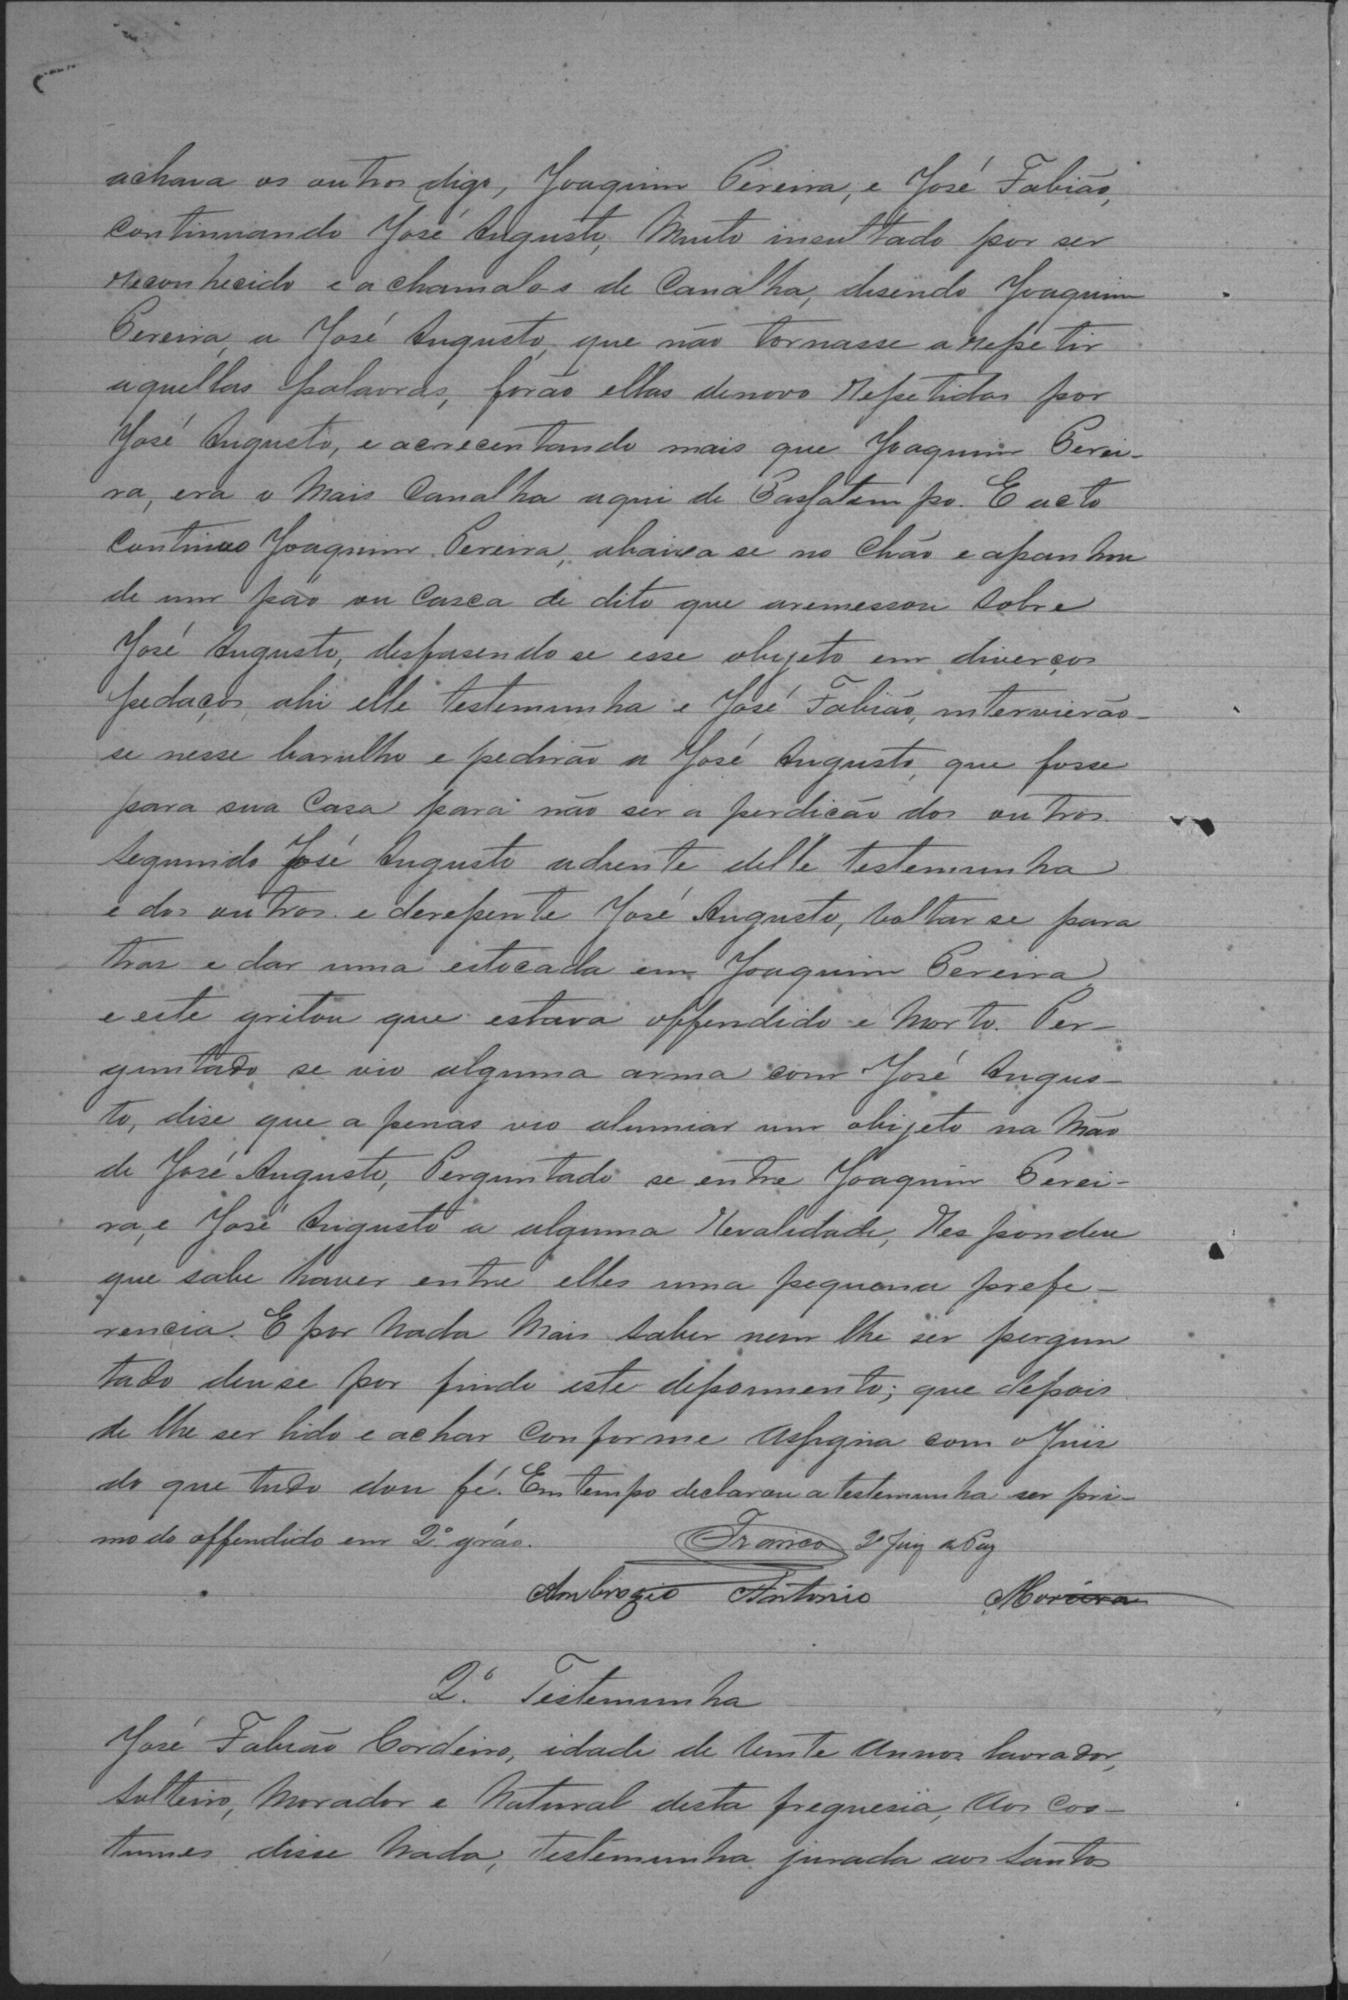 achava os outros digo, Joaquim Pereira, e José Fabião,
continuando José Augusto, Muito insultado por ser
reconhecido e a chamalos de Canalha, disendo Joaquim
Pereira, a José Augusto, que não tornasse a repetir
aquellas palavras, forão ellas denovo Repetidas por
José Augusto, e acrecentando mais que Joaquim Perei-
ra, era o Mais Canalha aqui de Passatempo. E acto
Continuo Joaquim Pereira, abaixa se no Chão e apanhou
de um páo ou Casca de dito que aremessou Sobre
José Augusto, desfasendo se esse obijeto em diverços
pedaços, ahi elle testemunha e José Fabião, intervierão-
se nesse barulho e pedirão a José Augusto, que fosse
para sua Casa para não ser a perdicão dos outros.
Seguindo José Augusto adiente delle testemunha
e dos outros. e derepente José Augusto, Voltar se para
traz e dar uma estocada em Joaquim Pereira
e este gritou que estava offendido e Morto. Per-
guntado se vio alguma arma com José Augus-
to, dise que a penas vio alumiar um obijeto na Mão
de José Augusto, Perguntado se entre Joaquim Perei-
ra, e José Augusto a alguma Revalidade, Respondeu
que sabe haver entre elles uma pequena prefe-
rencia. E por Nada Mais Saber nem lhe ser pergun
tado deu se por findo este depoimento; que depois
de lhe ser lido e achar Conforme Assigna com o Juis
do que tudo dou fé. Em tempo declarou a testemunha ser pri-
mo do offendido em 2º gráo. Franco 2º Juiz de Paz
Ambrozio Antonio Moreira
2ª Testemunha
José Fabião Cordeiro, idade de Vinte Annos lavrador,
Solteiro, Morador e Natural desta freguesia, Aos Cos-
tumes disse Nada, Testemunha jurada aos Santos